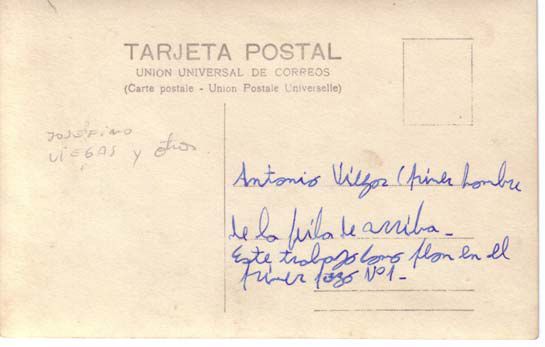 TARJETA POSTAL
UNIÓN UNIVERSAL DE CORREOS
(Carte postale - Union Postale Universelle)
JOSEFINO
VIEGAS y otros
Antonio Viegas (primer hombre
de la fila de arriba_
Este trabajo como peon en el
primer pozo Nº1_